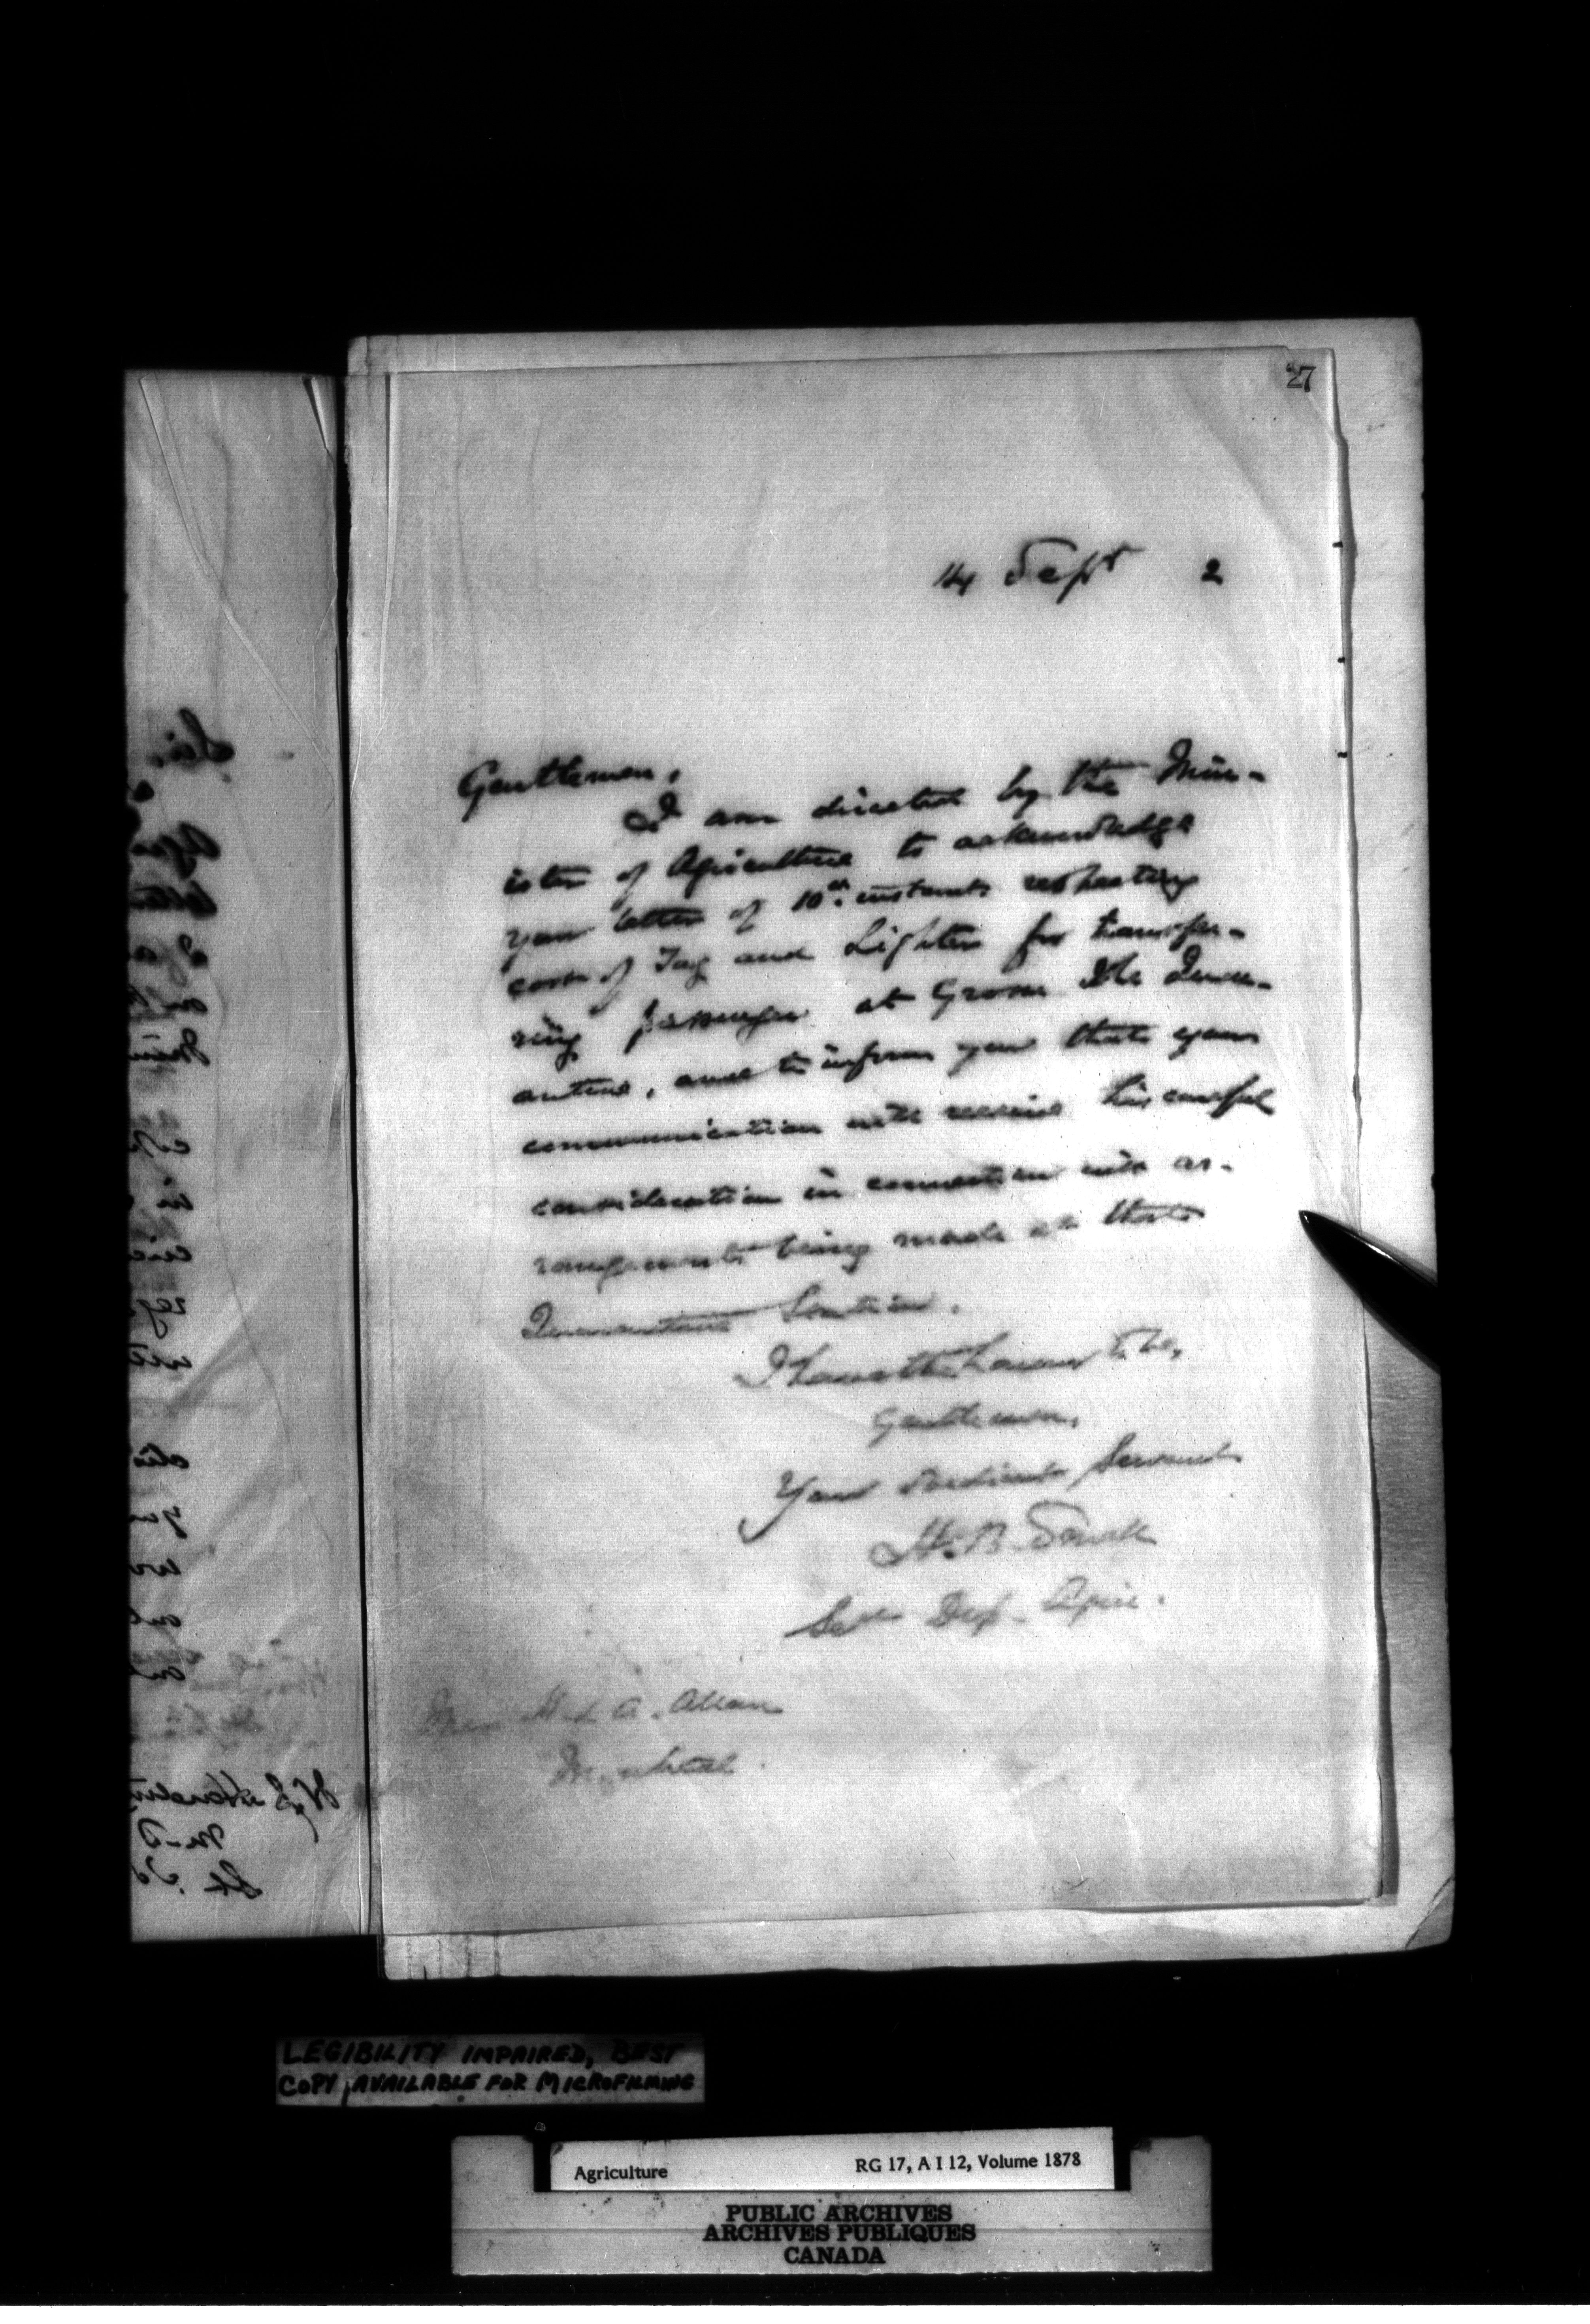 27
14 Sept 2
Gentlemen,
I am directed by the Min-
ister of Agriculture to acknowledge
your letter of 10th instant respecting
cost of Tug and Lighter for transfer-
ring passenger at Grosse Isle Quar-
antine, and to inform you that your
communication will receive his careful
consideration in connection with ar-
rangements being made at that
Quarantine Station.
I have the honour to be,
Gentlemen,
Your obedient Servant
Dep. Agric.
H & A. Allan
Montreal
LEGIBILITY IMPAIRED, BEST
COPY AVAILABLE FOR MICROFILMING
Agriculture RG 17, A I 12, Volume 1878
PUBLIC ARCHIVES
ARCHIVES PUBLIQUES
CANADA